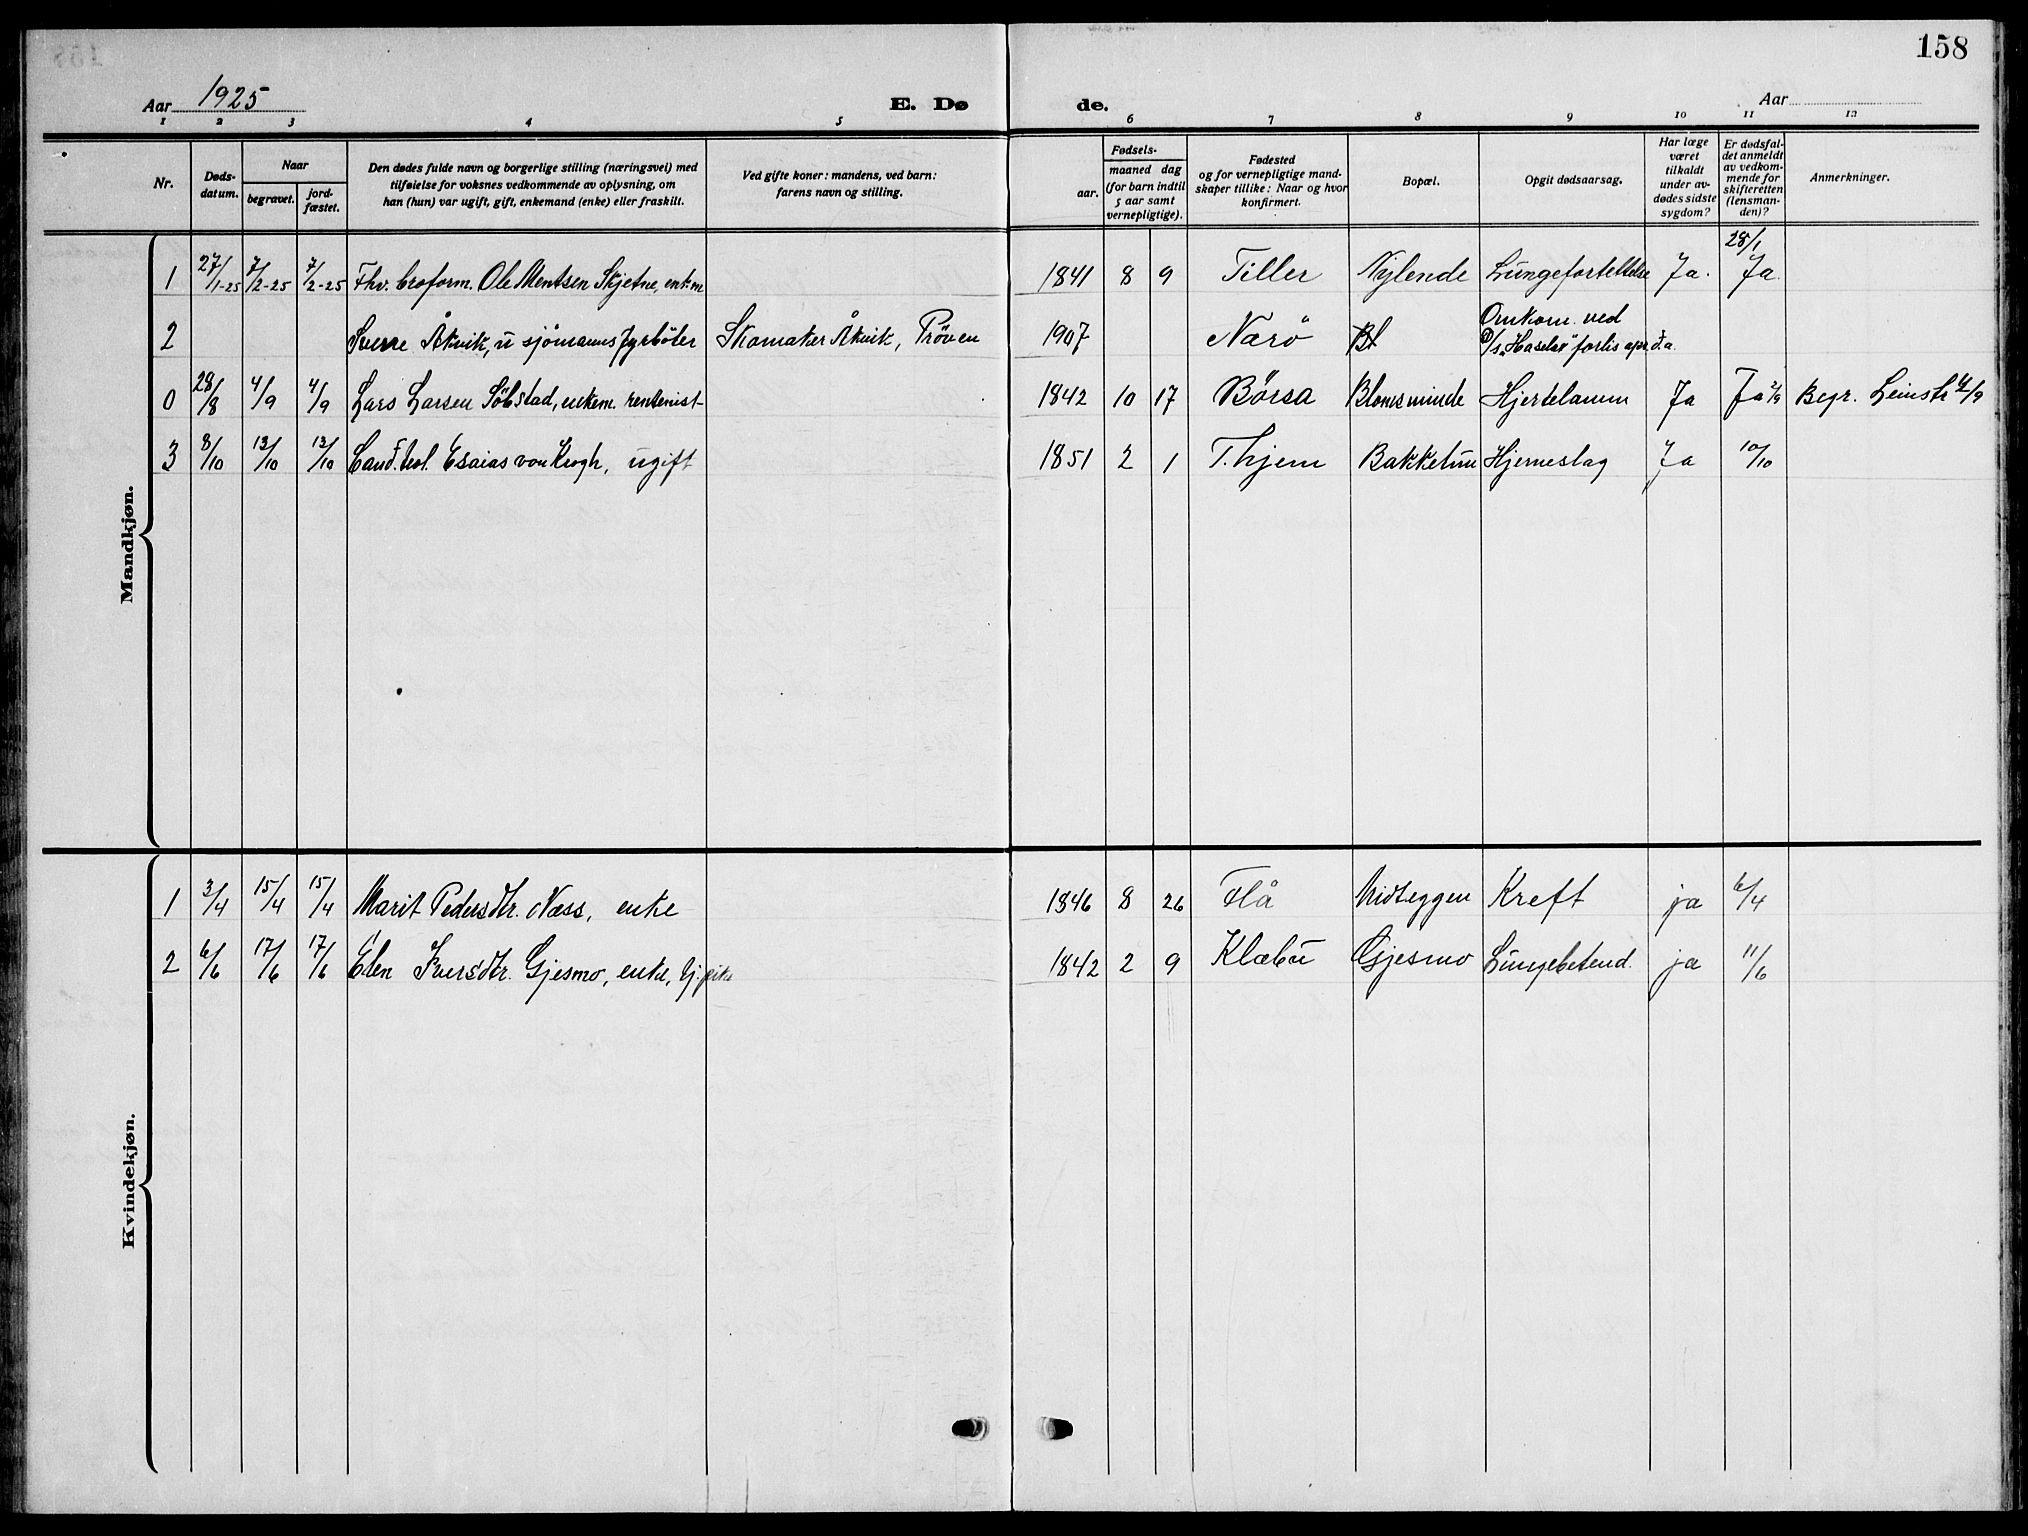 158
Aar 1925
E. Dø
de.
Aar
1 2 3 4 5 6 7 8 9 10 11 12
Nr.
Døds-
datum.
Naar
begravet.
jord-
fæstet.
Den dødes fulde navn og borgerlige stilling (næringsvei) med
tilføielse for voksnes vedkommende av oplysning, om
han (hun) var ugift, gift, enkemand (enke) eller fraskilt.
Ved gifte koner: mandens, ved barn:
farens navn og stilling.
Fødsels-
aar.
maaned dag
(for barn indtil
5 aar samt
vernepligtige).
Fødested
og for vernepligtige mand-
skaper tillike: Naar og hvor
konfirmert.
Bopæl.
Opgit dødsaarsag.
Har læge
været
tilkaldt
under av-
dødes sidste
sygdom?
Er dødsfal-
det anmeldt
av vedkom-
mende for
skifteretten
(lensman-
den)?
Anmerkninger.
Mandkjøn.
28/1
1 27/1-25 7/2-25 7/2-25 Fhv. broform. Ole Mentsen Skjetne, enkem 1841 8 9 Tiller Nylende Lungefortettelse Ja. Ja.
Omkom. ved
2 Sverre Åkvik, u sjømanns fyrbøter Skomaker Åkvik, Prøven 1907 Nærö D/s "Haselø" forlis apr. d.a.
0 28/8 4/9 4/9 Lars Larsen Söbstad, enkem. rentenist 1842 10 17 Börsa Blomsminde Hjertelamm Ja Ja 2/9 Begr. Leinstr. 4/9
3 8/10 13/10 13/10 Cand. teol. Esaias von Krogh, ugift 1851 2 1 T.hjem Bakketun Hjerneslag Ja 10/10
Kvindekjøn.
1 3/4 15/4 15/4 Marit Pedersdtr. Næss, enke 1846 8 26 Flå Nidteggen Kreft ja 6/4
2 6/6 17/6 17/6 Elen Iversdtr. Gjesmo, enke, 1842 2 9 Klæbu Gjesmo Lungebetend. ja 11/6